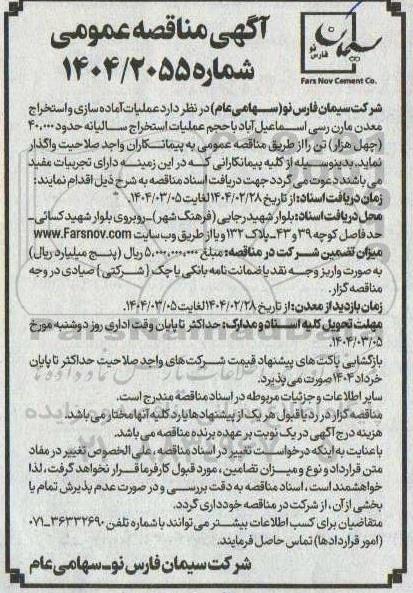 آگهی مناقصه عمومی
شماره ۱۴۰۴/۲۰۵۵
سیمان
فارس نو
Fars Nov Cement Co.
شرکت سیمان فارس نو (سهامی عام) در نظر دارد عملیات آماده سازی و استخراج
معدن مارن رسی اسماعیل آباد با حجم عملیات استخراج سالیانه حدود ۴۰.۰۰۰
(چهل هزار) تن را از طریق مناقصه عمومی به پیمانکاران واجد صلاحیت واگذار
نماید. بدینوسیله از کلیه پیمانکارانی که در این زمینه دارای تجربیات مفید
می باشند دعوت می گردد جهت دریافت اسناد مناقصه به شرح ذیل اقدام نمایند:
زمان دریافت اسناد: از تاریخ ۱۴۰۴/۰۲/۲۸ لغایت ۱۴۰۴/۰۳/۰۵.
محل دریافت اسناد: بلوار شهید رجایی (فرهنگ شهر) - روبروی بلوار شهید کسائی -
حد فاصل کوچه ۳۹ و ۴۳ - پلاک ۱۳۲ و یا از طریق وب سایت www.Farsnov.com
میزان تضمین شرکت در مناقصه: مبلغ ۵.۰۰۰.۰۰۰.۰۰۰ ریال (پنج میلیارد ریال)
به صورت واریز وجه نقد یا ضمانت نامه بانکی یا چک (شرکتی) صیادی در وجه
مناقصه گزار.
زمان بازدید از معدن: از تاریخ ۱۴۰۴/۰۲/۲۸ لغایت ۱۴۰۴/۰۳/۰۵.
مهلت تحویل کلیه اسناد و مدارک: حداکثر تا پایان وقت اداری روز دوشنبه مورخ
۱۴۰۴/۰۳/۰۵.
بازگشایی پاکت های پیشنهاد قیمت شرکت های واجد صلاحیت حداکثر تا پایان
خرداد ۱۴۰۴ صورت می پذیرد.
سایر اطلاعات و جزئیات مربوطه در اسناد مناقصه مندرج است.
مناقصه گزار در رد یا قبول هر یک از پیشنهادها یا رد کلیه آنها مختار می باشد.
هزینه درج آگهی در یک نوبت بر عهده برنده مناقصه می باشد.
با عنایت به اینکه درخواست تغییر در اسناد مناقصه، علی الخصوص تغییر در مفاد
متن قرارداد و نوع و میزان تضامین، مورد قبول کارفرما قرار نخواهد گرفت، لذا
خواهشمند است، اسناد مناقصه به دقت بررسی و در صورت عدم پذیرش تمام یا
بخشی از آن، از شرکت در مناقصه خودداری گردد.
متقاضیان برای کسب اطلاعات بیشتر می توانند با شماره تلفن ۳۶۳۳۲۶۹۰-۰۷۱
(امور قراردادها) تماس حاصل فرمایند.
شرکت سیمان فارس نو - سهامی عام